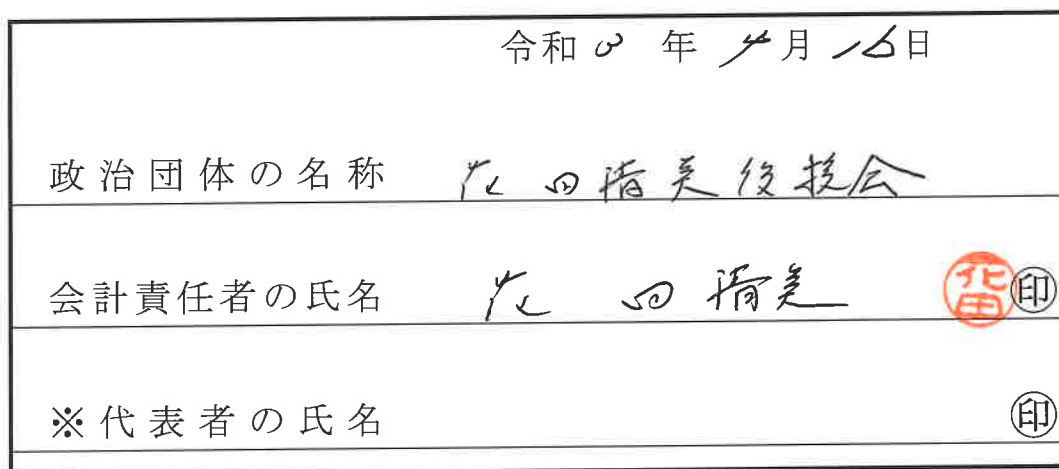 令和3年4月16日
政治団体の名称 花田清美後援会
会計責任者の氏名 花田清美 花田 印
※代表者の氏名 印